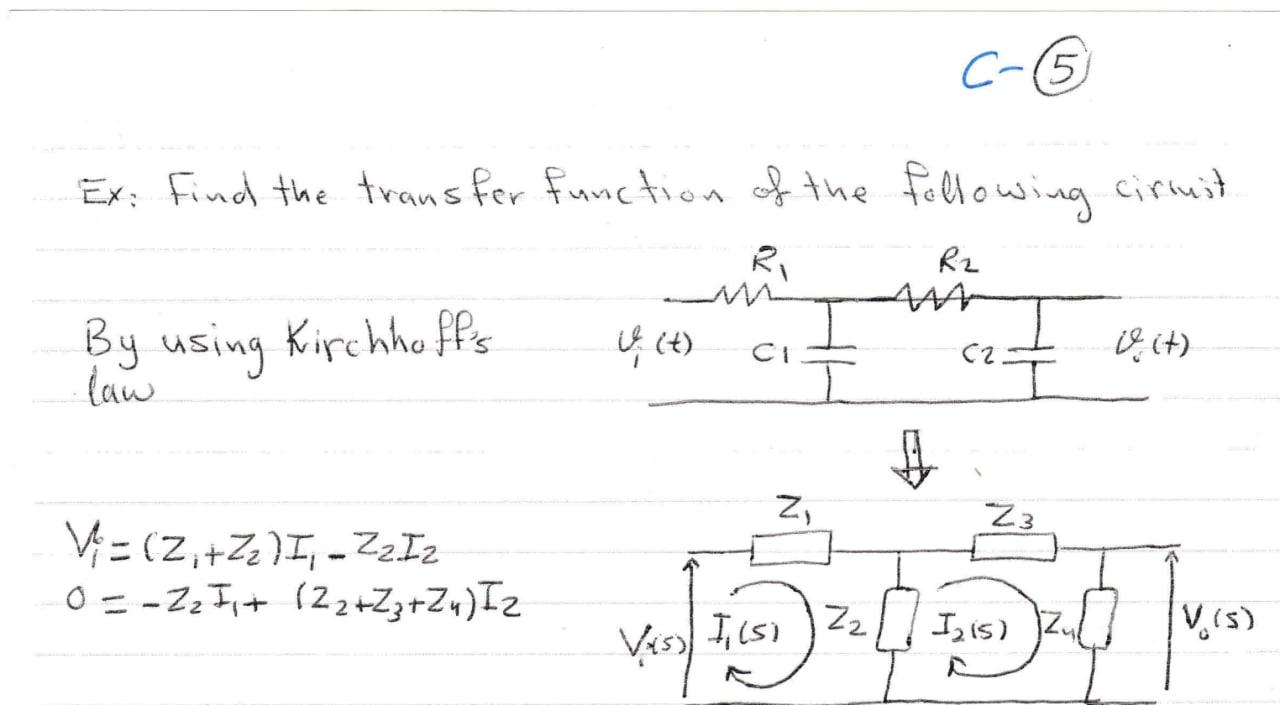 C-⑤
Ex: Find the transfer function of the following circuit
R₁ R₂
By using Kirchhoff's
law
vᵢ(t) C1 C2 vₒ(t)
Z₁ Z₃
Vᵢ = (Z₁+Z₂)I₁ - Z₂I₂
0 = -Z₂I₁ + (Z₂+Z₃+Z₄)I₂
Vᵢ(s) I₁(s) Z₂ I₂(s) Z₄ Vₒ(s)